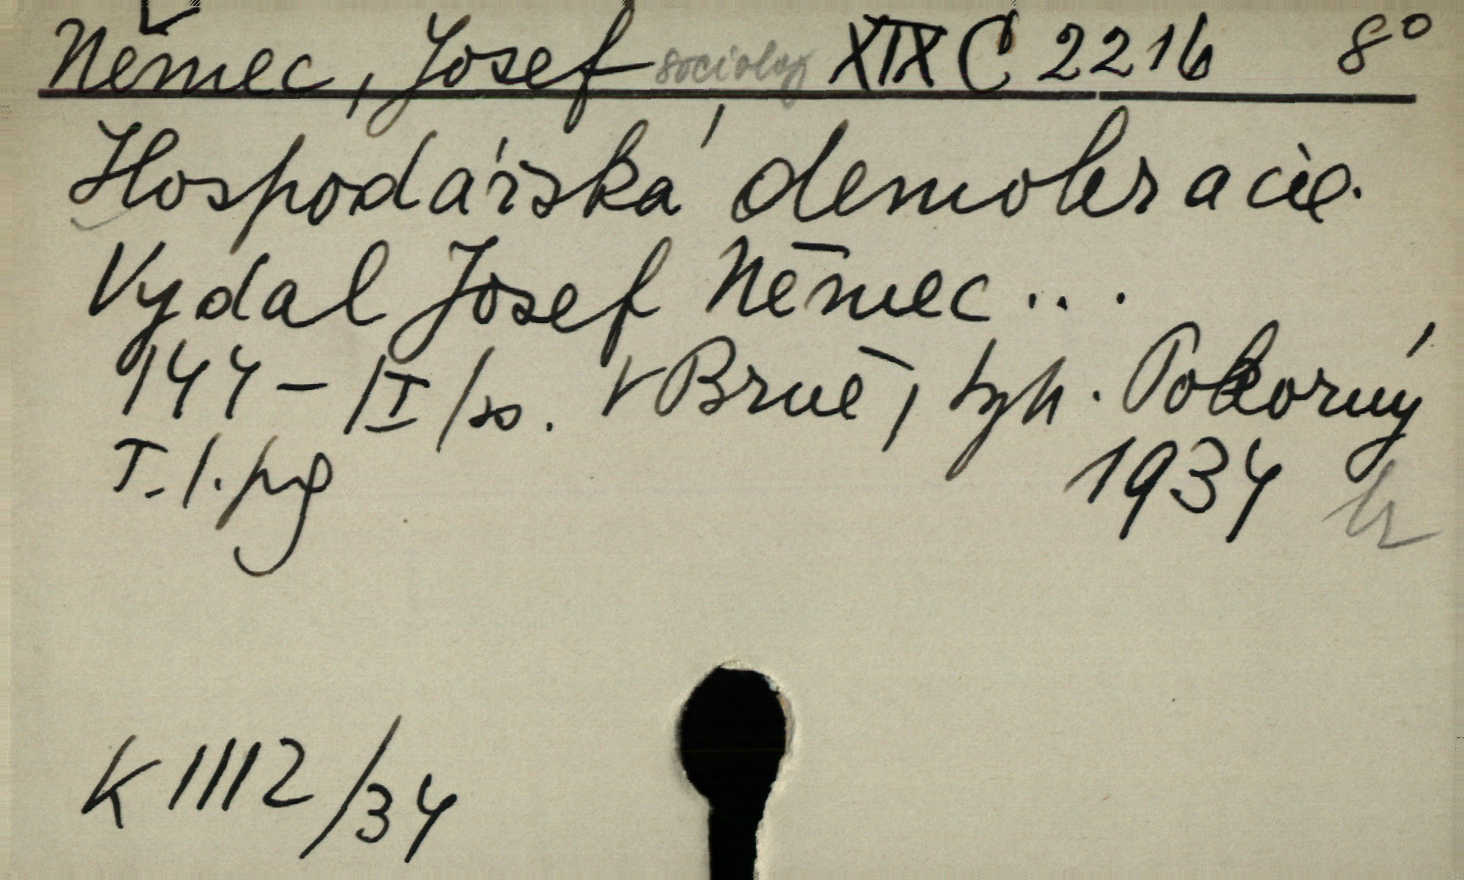 Němec, Josef sociolog XIX C 2216 8°
Hospodářská demokracie.
Vydal Josef Němec ...
144 – /I/ s. V Brně, typ. Pokorný
T. l. pg 1934
K 1112/34